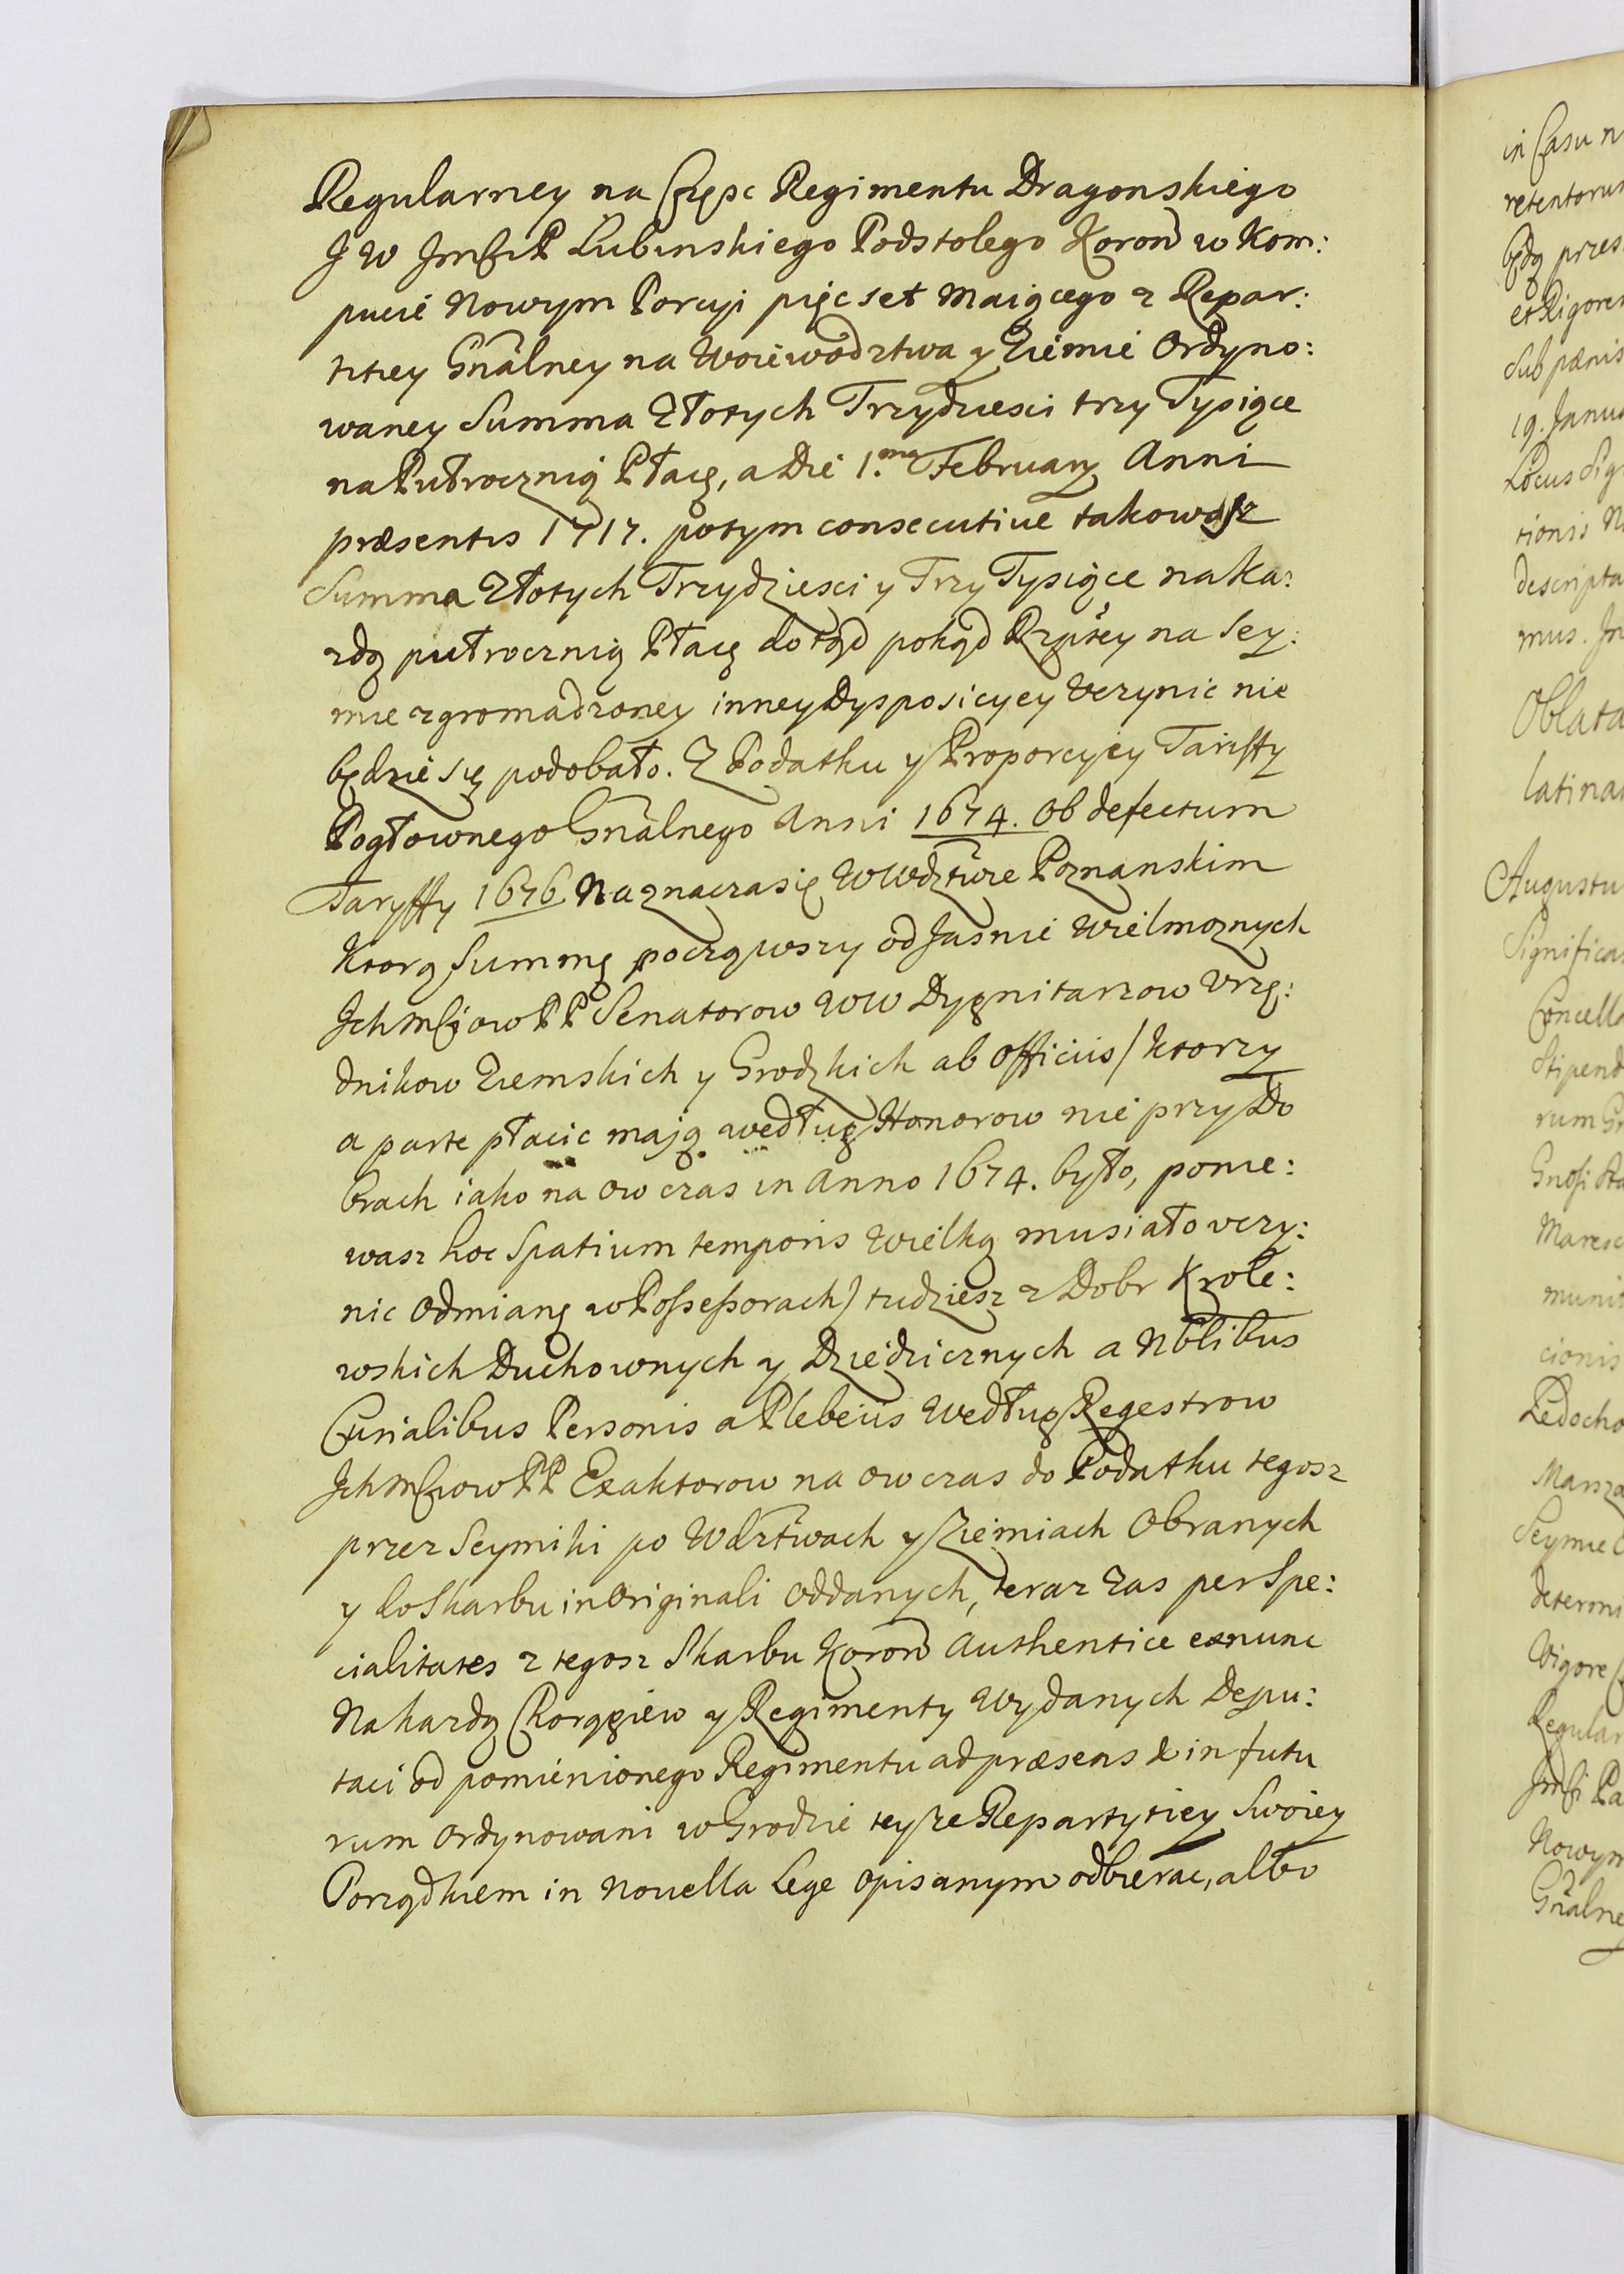 Regularney na Częsc Regimentu Dragonskiego
J W JmCiP Lubinskiego Podstolego Koron w Kom:
pucie Nowym Porcyi pięc set Maiącego z Repar:
titiey Gnalney na Woiewodztwa y Ziemie Ordyno:
waney Summa Złotych Trzydziesci trzy Tysiące
na Pułrocznią Płacę, a Die 1.ma February Anni
præsentis 1717. potym consecutiue takowasz
Summa Złotych Trzydziesci y Trzy Tysiące na Ka:
zdą pułrocznią Płacę dotąd pokąd Rzptey na Sey:
mie zgromadzoney inney Dysposicyey Vczynic nie
będzie się podobało. Z Podatku y Proporcyiey Tariffy
Pogłownego Gnalnego Anni 1674. Ob defectum
Taryffy 1676 Naznacza się W Wdztwie Poznanskim
Ktorą Summę począwszy od Jasnie Wielmoznych
JchmCiow PP Senatorow WW Dygnitarzow Vrzę:
dnikow Ziemskich y Grodzkich ab Officiis / Ktorzy
a parte płacic mają według Honorow nie przy Do
brach iako na ow czas in Anno 1674. było, ponie:
wasz hoc Spatium temporis Wielką musiało vczy:
nic Odmianę w Possessorach) tudziesz z Dobr Krole:
wskich Duchownych y Dziedzicznych a Nblibus
Curialibus Personis a Plebeiis Według Regestrow
JchmCiow PP Exaktorow na ow czas do Podatku tegosz
przez Seymiki po Wdztwach y Ziemiach Obranych
y do Skarbu in Originali Oddanych, teraz Zas per Spe:
cialitates z tegosz Skarbu Koron Authentice exnunc
Na kazdą Chorągiew y Regimenty Wydanych Depu:
taci od pomienionego Regimentu ad præsens & in futu
rum ordynowani w Grodzie teysze Repartytiey Swoiey
Porządkiem in Nouella Lege opisanym odbierac, albo
in Casu n
retentorum
będą przes
et Rigorem
Sub pænis
19. Janua
Locus Sig
tionis N
descripta
mus. Jn
Oblata
latina
Augustu
Significa
Concella
Stipend
rum Gn
Maresc
munit
cionis
Ledocho
Marsza
Seymie
determi
Vigore
Regular
JmCi Pa
Nowym
Gnalne